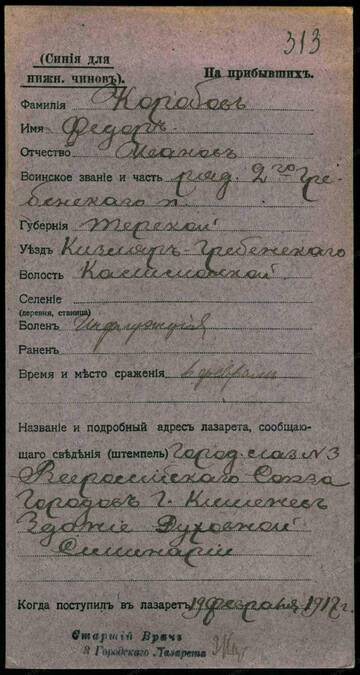 313
(Синія для
нижн. чиновъ).
На прибывшихъ.
Фамилія Коробовъ
Имя Федоръ
Отчество Ивановъ
Воинское званіе и часть ряд. 2го Гре-
бенскаго п.
Губернія Терской
Уѣздъ Кизляръ-Гребенскаго
Волость
Селеніе
(деревня, станица)
Боленъ Инфлуэнція
Раненъ
Время и мѣсто сраженія 6 февраля
Названіе и подробный адресъ лазарета, сообщаю-
щаго свѣдѣнія (штемпель) Город. лаз N 3
Всероссийскаго Союза
Городовъ г. Кишиневъ
Зданіе Духовной
Семинаріи
Когда поступилъ въ лазаретъ 19 февраля 1917 г.
Старшій Врачъ
3 Городского Лазарета